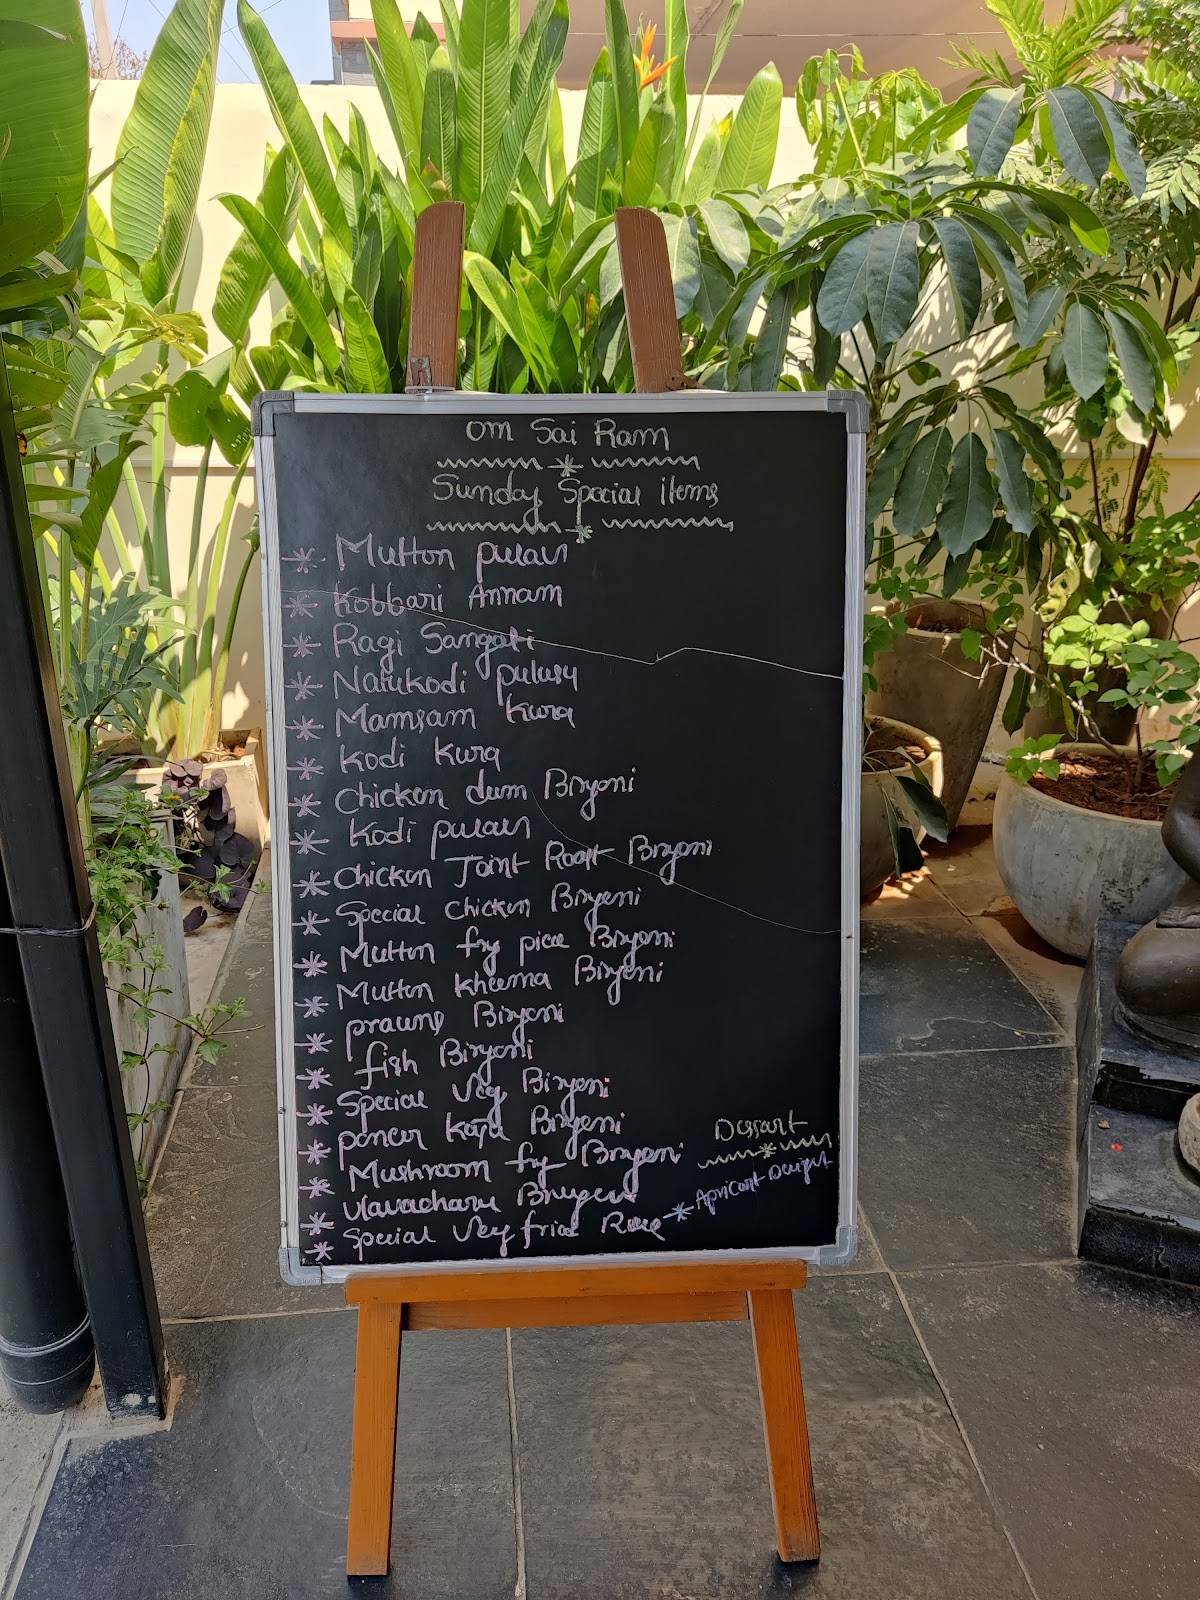 Om Sai Ram
Sunday Special items
Mutton pulav
Kobbari Annam
Ragi Sangati
Natukodi pulav
Mamsam Kura
Kodi Kura
Chicken dum Biryani
Kodi pulav
Chicken Joint Roast Biryani
Special Chicken Biryani
Mutton fry piece Biryani
Mutton Kheema Biryani
prauns Biryani
fish Biryani
Special Veg Biryani
paneer Kaju Biryani
Mushroom fry Biryani
Ulavacharu Biryani
Special Veg fried Rice
Dessart
Apricart Delight